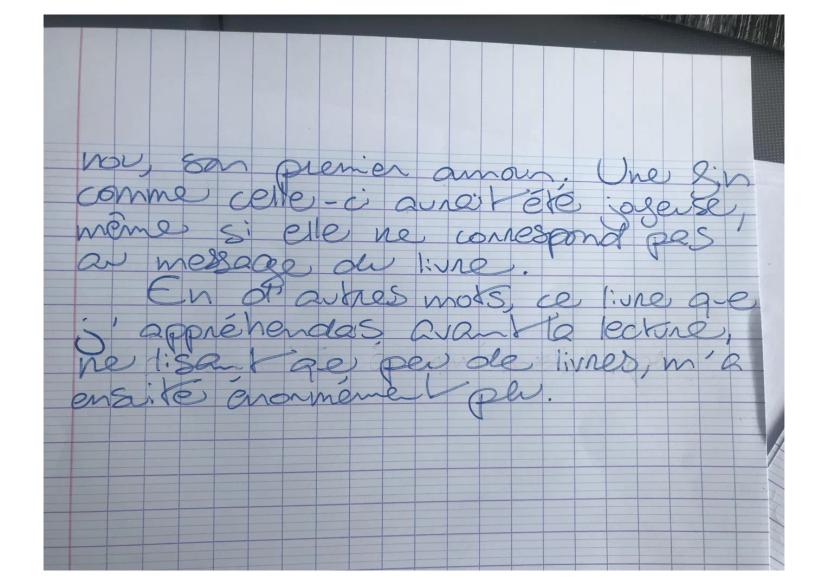 nou, son premier amour. Une fin
comme celle-ci aurait été joyeuse,
même si elle ne correspond pas
au message du livre.
En d'autres mots, ce livre que
j'appréhendas avant la lecture,
ne lisant que peu de livres, m'a
ensuite énormément plu.